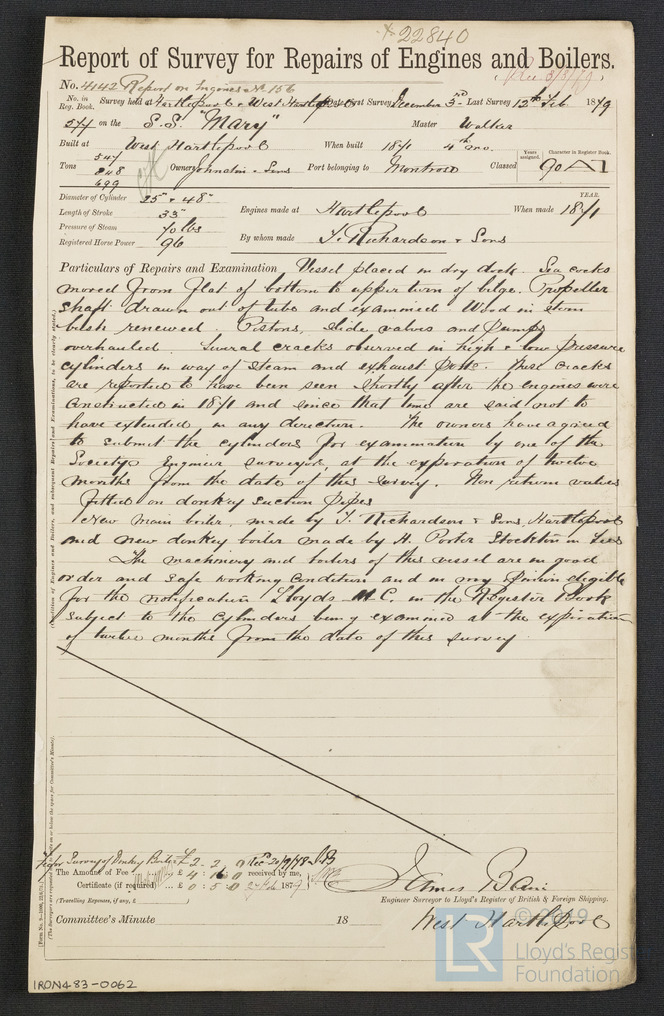 22840
Report of Survey for Repairs of Engines and Boilers.
No. 4142 Report on Engines No. 156
No. in Reg. Book. Survey held at Hartlepool & West Hartlepool First Survey December 3rd Last Survey 12th Feb 1879
574 on the S.S. "Mary" Master Walker
Built at West Hartlepool When built 1871 4th mo.
Tons 547 848 699 Owners Johnston & Sons Port belonging to Montrose Classed Years assigned. 90 Character in Register Book. A1
Diameter of Cylinder 25" & 48"
Length of Stroke 33"
Pressure of Steam 70 lbs
Registered Horse Power 96
Engines made at Hartlepool When made YEAR. 1871
By whom made T. Richardson & Sons
Particulars of Repairs and Examination Vessel placed in dry dock. Sea cocks
moved from flat of bottom to upper turn of bilge. Propeller
shaft drawn out of tube and examined. Wood in stern
bush renewed. Pistons, slide valves and pumps
overhauled. Several cracks observed in high & low pressure
cylinders in way of steam and exhaust ports. These cracks
are reported to have been seen shortly after the engines were
constructed in 1871 and since that time are said not to
have extended in any direction. The owners have agreed
to submit the cylinders for examination by one of the
Society's Engineer surveyors, at the expiration of twelve
months from the date of this survey. Non return valves
fitted on donkey suction pipes
New main boiler, made by T. Richardson & Sons Hartlepool
and new donkey boiler made by H. Porter Stockton on Tees
The machinery and boilers of this vessel are in good
order and safe working condition and in my opinion eligible
for the notification Lloyds M.C. in the Register Book
subject to the cylinders being examined at the expiration
of twelve months from the date of this survey.
Fee for Survey of Donkey Boiler £2-2-0 Recd 20/9/78 JB
The Amount of Fee £ 4 : 16 : 0 received by me,
Certificate (if required) ... £ 0 : 5 : 0 1879
(Travelling Expenses, if any, £ )
James Bain
Engineer Surveyor to Lloyd's Register of British & Foreign Shipping.
West Hartlepool
Committee's Minute 18
IRON483-0062
© 2019
LR
Lloyd's Register
Foundation